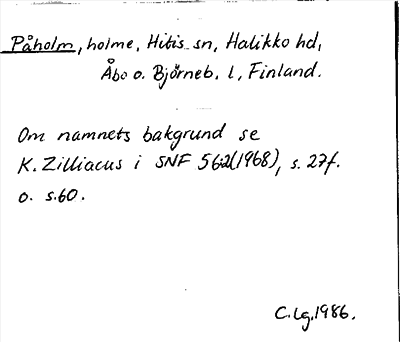 Påholm, holme, Hitis sn, Halikko hd,
Åbo o. Björneb. l, Finland.
Om namnets bakgrund se
K. Zilliacus i SNF 56:2(1968), s. 27f.
o. s.60.
C. Lg. 1986.